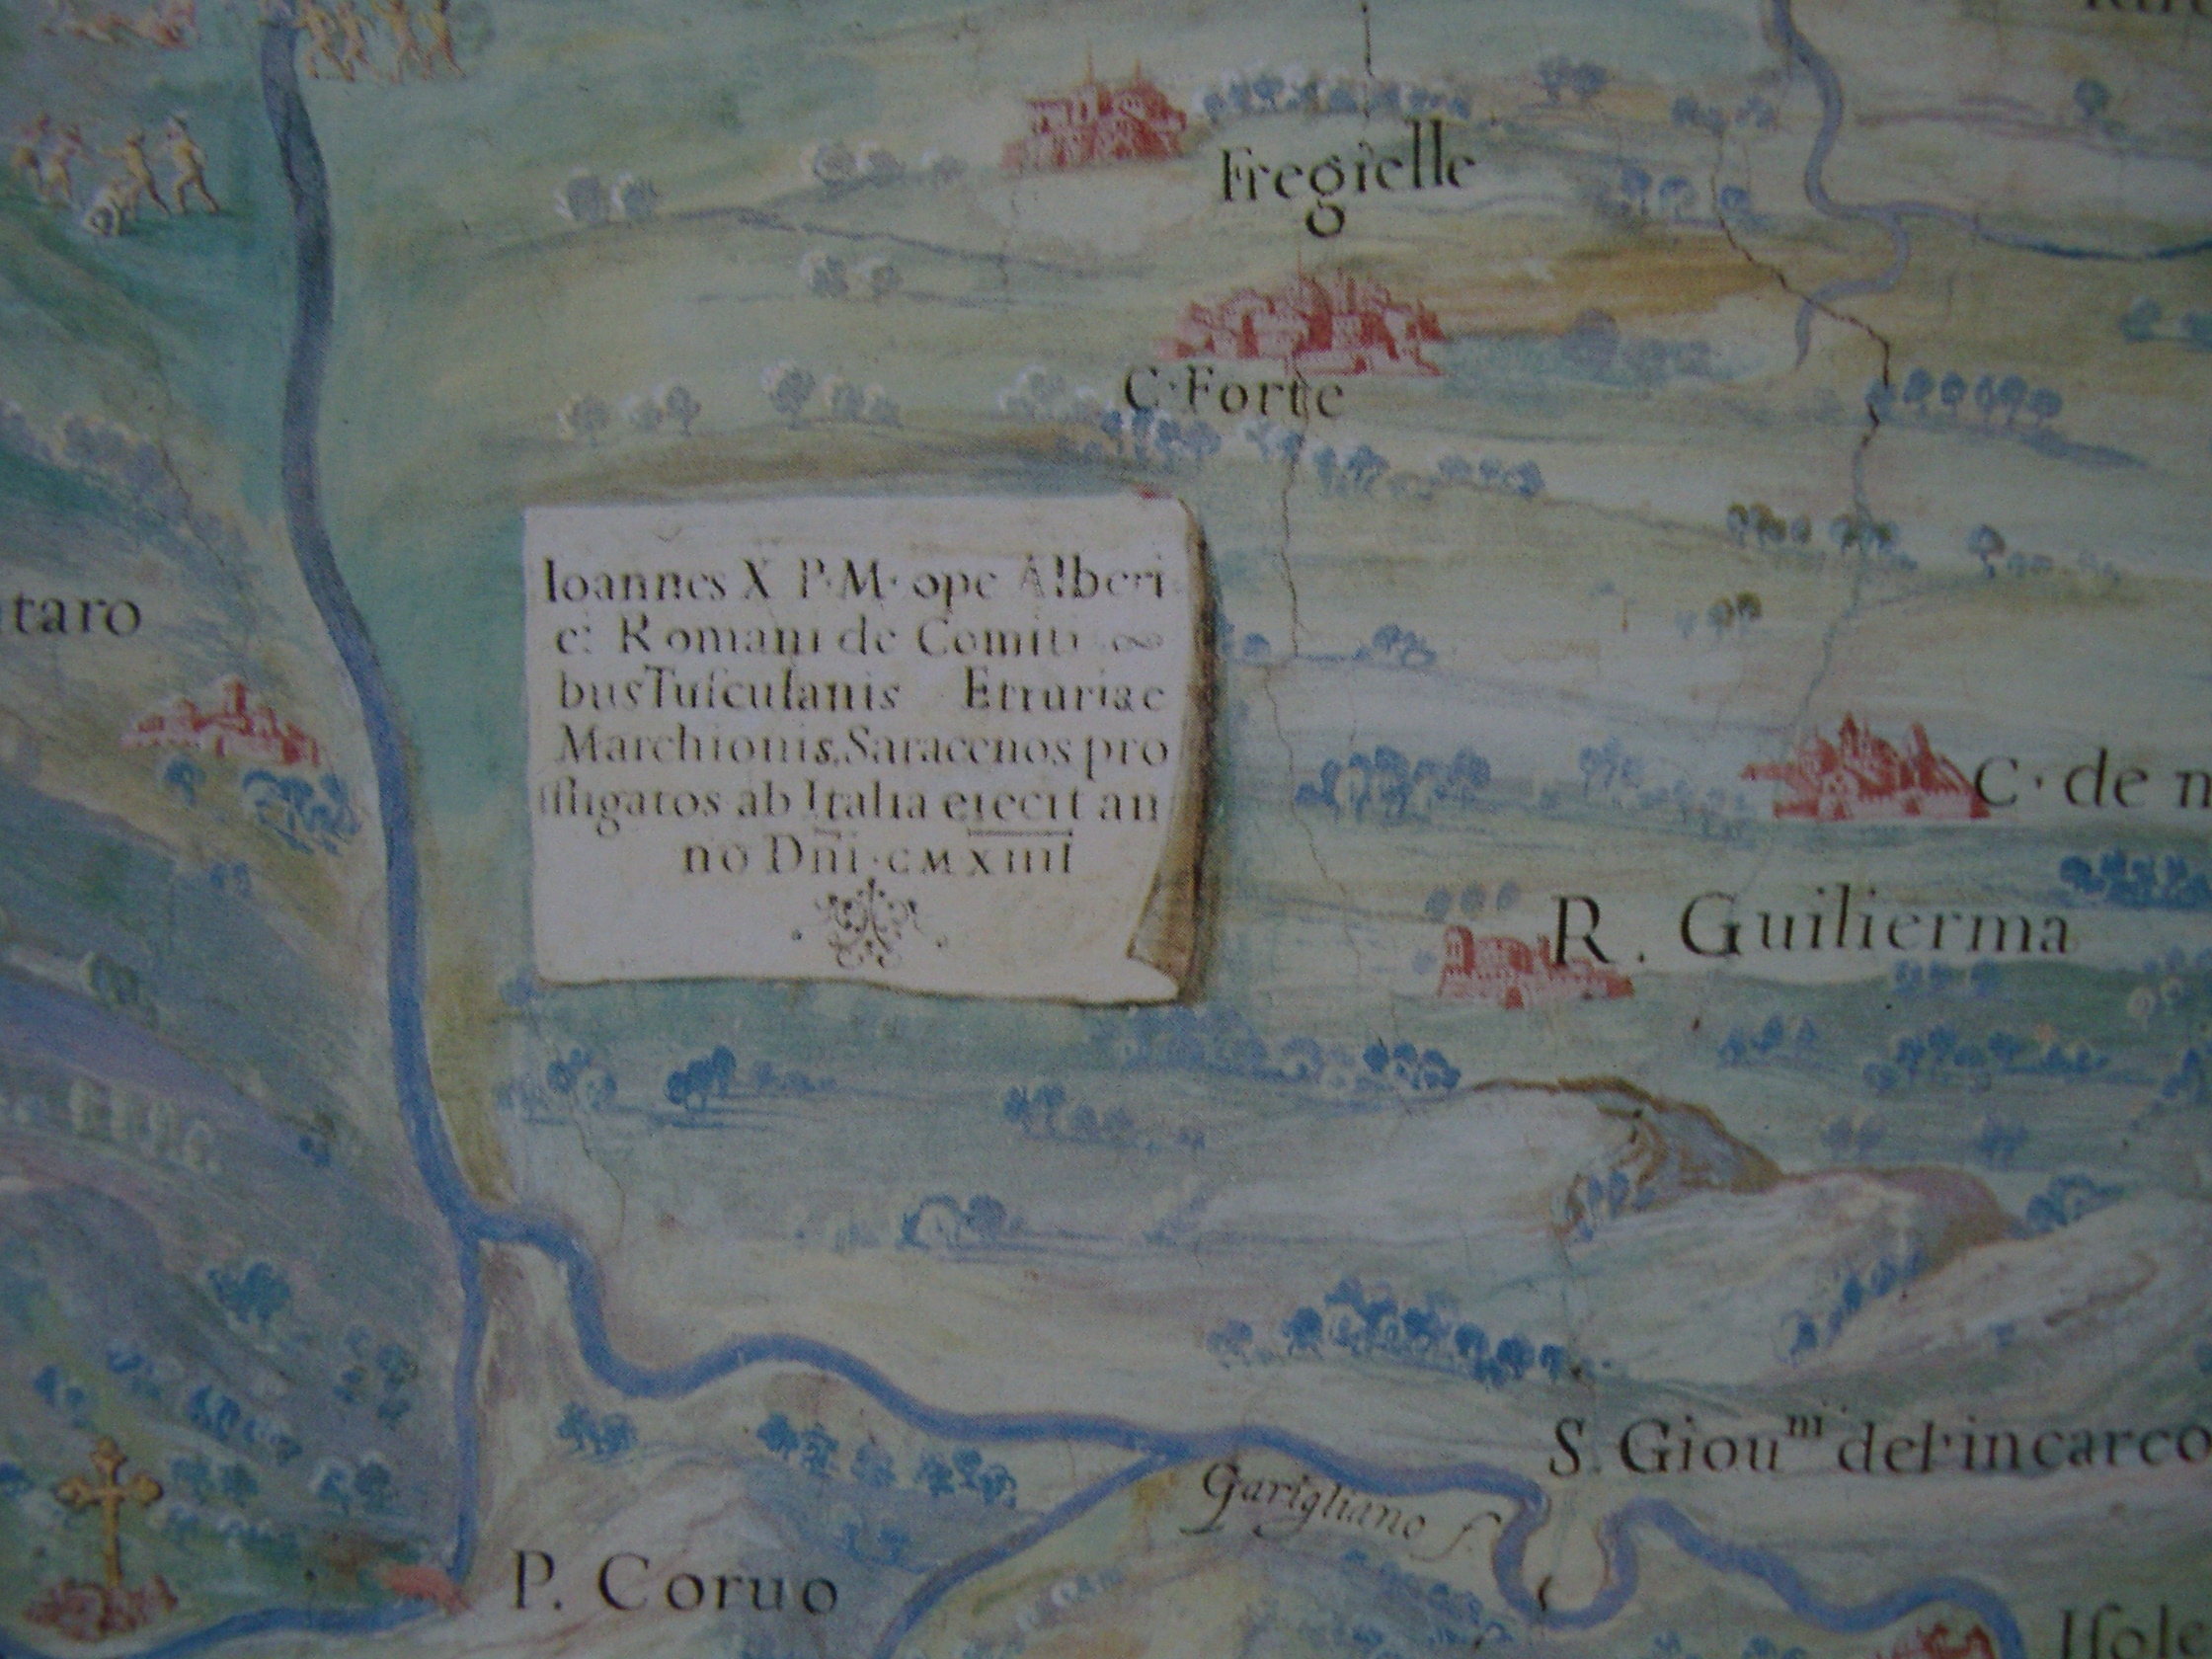 Fregielle
C. Forte
Ioannes X P. M. ope Alberi
ci Romani de Comiti
bus Tuſculanis Etruriae
Marchionis, Saracenos pro
ffligatos ab Italia eiecit an
no Dn̄i. CMXIIII
taro
C. de n
R. Guilierma
S. Giou.ni del'incarco
Garigliano f.
P. Coruo
Iſole